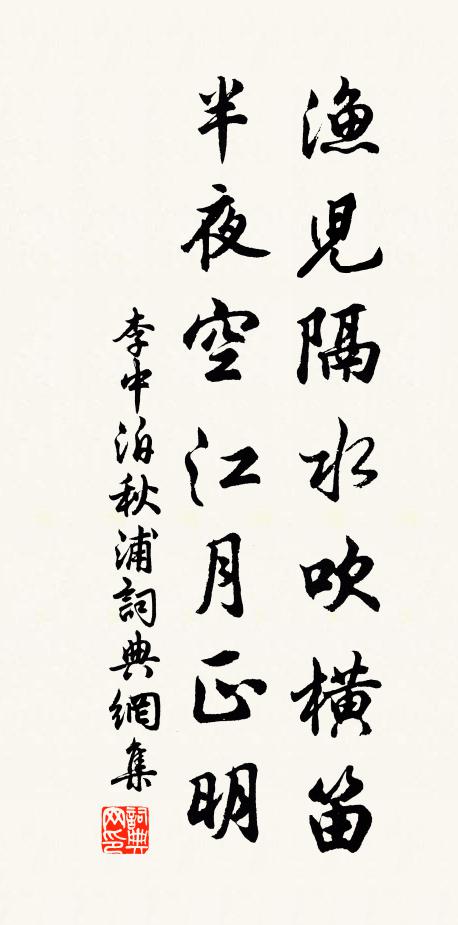 渔児隔水吹横笛
半夜空江月正明
李中泊秋浦詞典網集
詞典网印